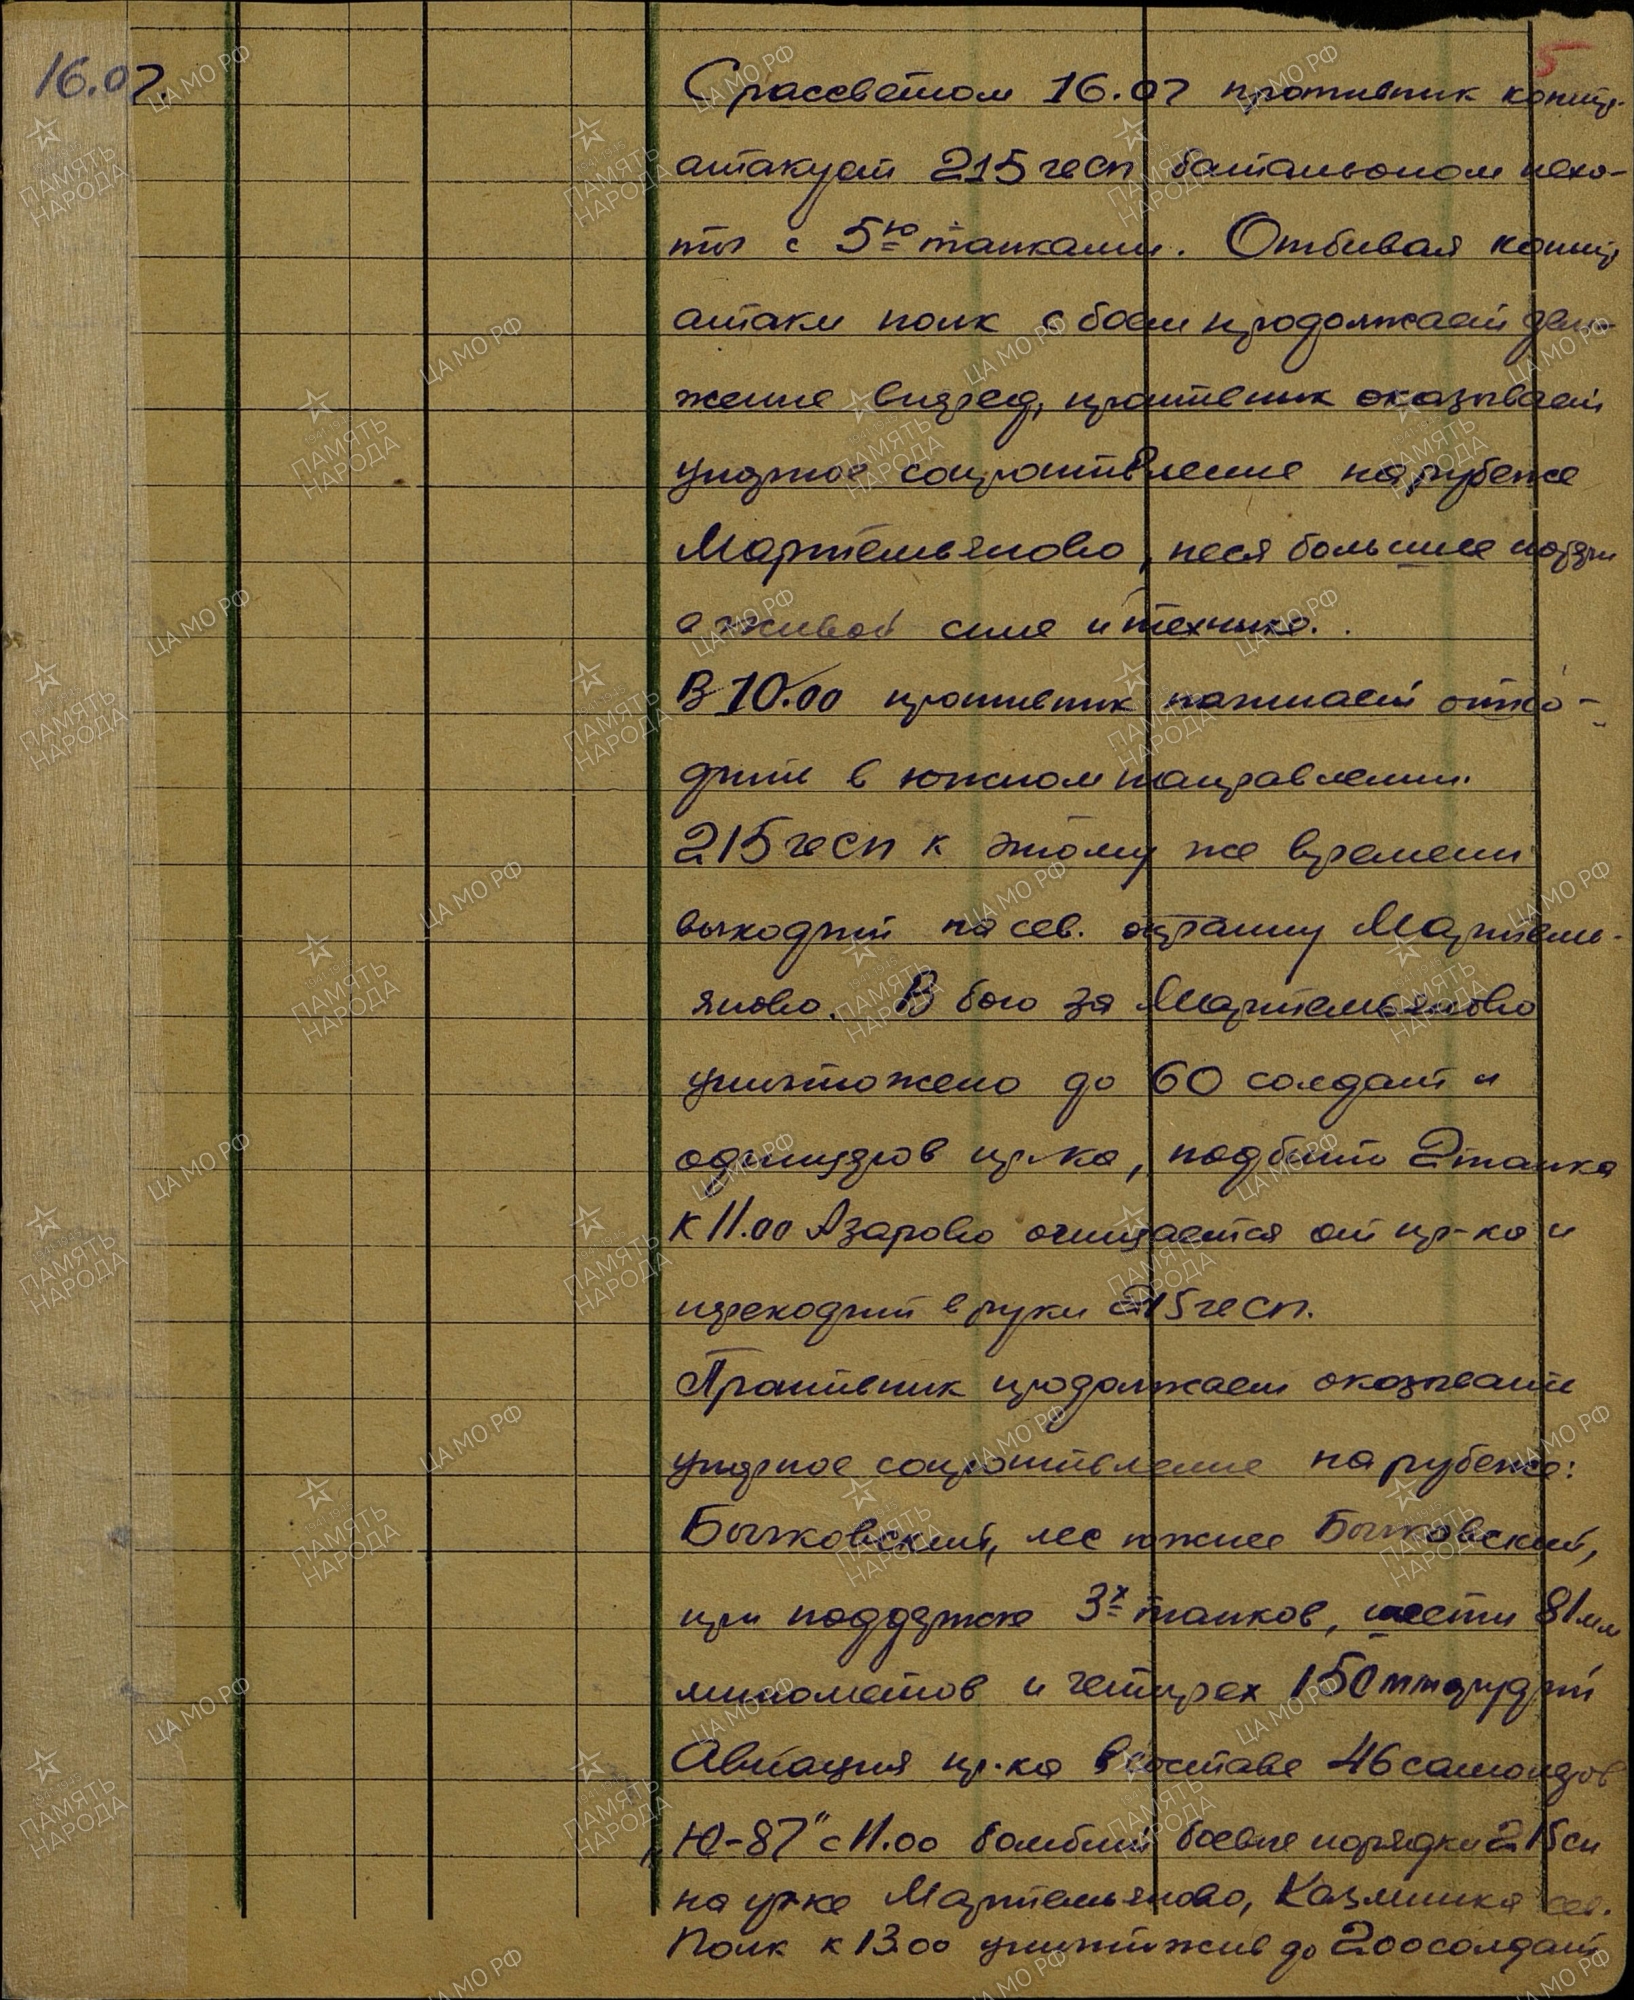 5
16.07. С рассветом 16.07 противник контр-
атакует 215 гвсп батальоном пехо-
ты с 5ю танками. Отбивая контр
атаки полк с боем продолжает дви-
жение вперед, противник оказывает
упорное сопротивление на рубеже
Мартемьяново, неся большие потери
в живой силе и технике.
В 10.00 противник начинает отхо-
дить в южном направлении.
215 гвсп к этому же времени
выходит на сев. окраину Мартемь-
яново. В бою за Мартемьяново
уничтожено до 60 солдат и
офицеров пр-ка, подбито 2 танка
К 11.00 Азарово очищается от пр-ка и
переходит в руки 215 гвсп.
Противник продолжает оказывать
упорное сопротивление на рубеже:
Бычковский, лес южнее Бычковский,
при поддержке 3х танков, шести 81мм
минометов и четырех 150мм орудий
Авиация пр-ка в составе 46 самолетов
„Ю-87" с 11.00 бомбит боевые порядки 215сп
на уч-ке Мартемьяново, сев.
Полк к 13.00 уничтожив до 200 солдат
ПАМЯТЬ НАРОДА
ЦАМО РФ